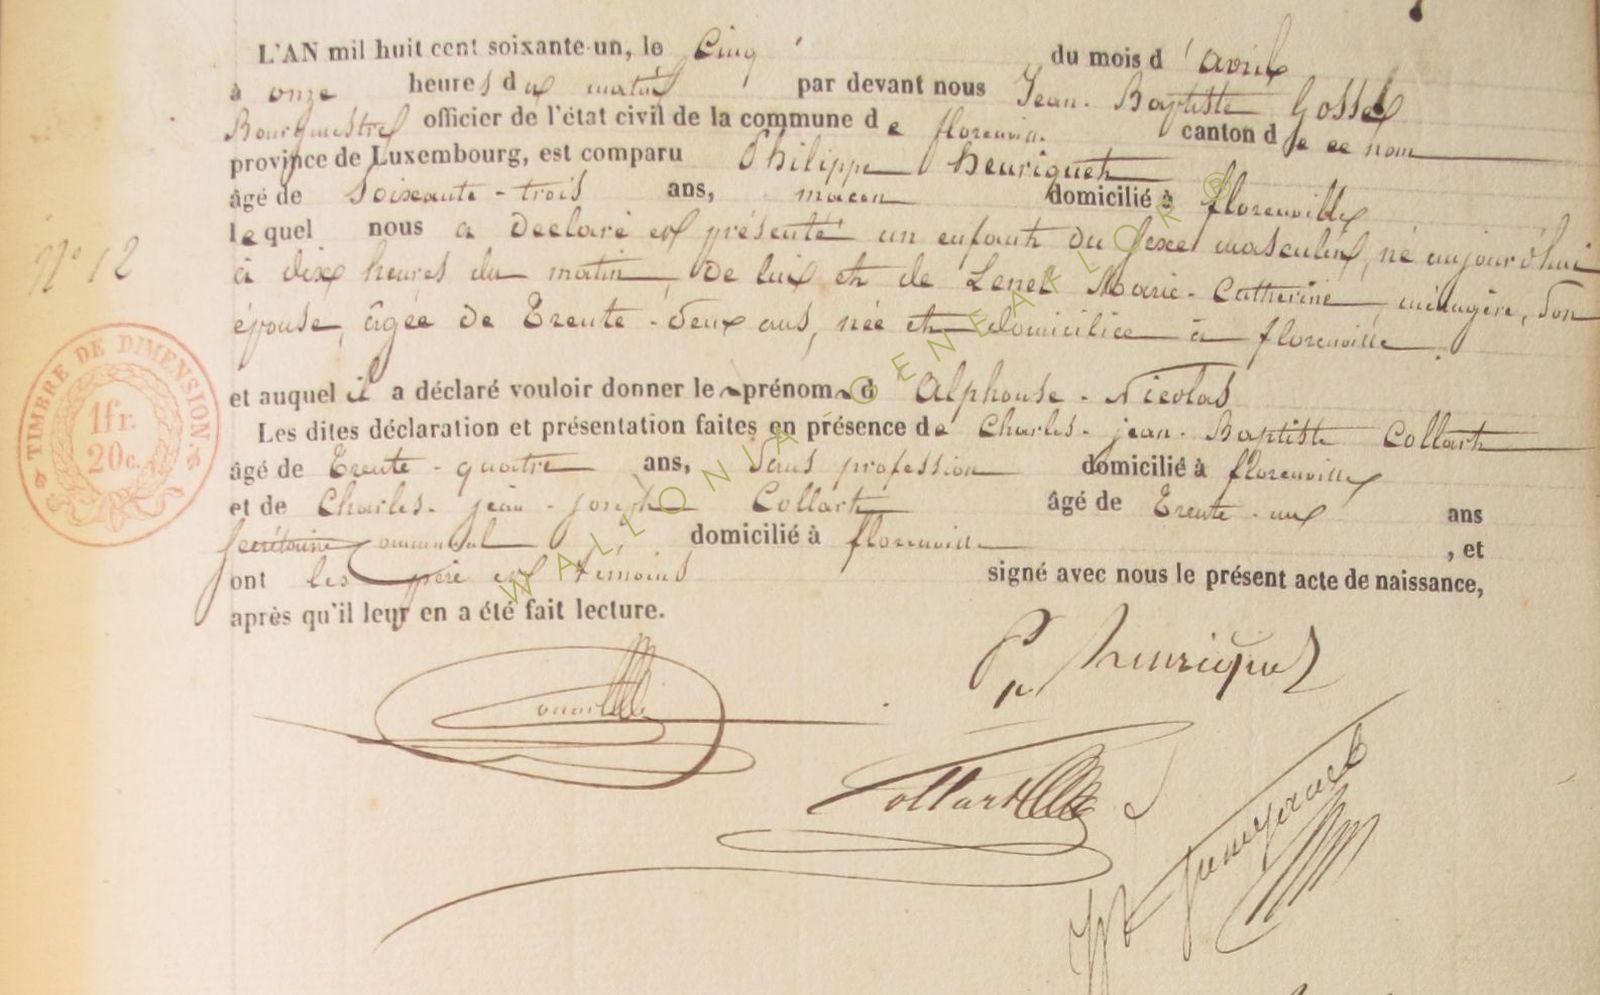 L'AN mil huit cent soixante-un, le Cinq du mois d'avril
à onze heures du matin par devant nous Jean-Baptiste Gossel
Bourgmestre officier de l'état civil de la commune de florenville canton de ce nom
province de Luxembourg, est comparu Philippe henriquet
âgé de Soixante-trois ans, macon domicilié à florenville
lequel nous a déclaré et présenté un enfant du sexe masculin, né aujourd'hui
N° 12
à dix heures du matin, de lui et de Lenel Marie-Catherine, ménagère, son
épouse, âgée de Trente-deux ans, née et domiciliée à florenville.
TIMBRE DE DIMENSION.
1 fr.
20 c.
et auquel il a déclaré vouloir donner le prénom d Alphonse-Nicolas
Les dites déclaration et présentation faites en présence de Charles-jean-Baptiste Collart
âgé de Trente-quatre ans, sans profession domicilié à florenville
et de Charles-jean-joseph Collart âgé de Trente-un ans
Secrétaire Communal domicilié à florenville, et
ont les père et témoins signé avec nous le présent acte de naissance,
après qu'il leur en a été fait lecture.
P henriquet
Collart
WALLONIA GENEAFLORB